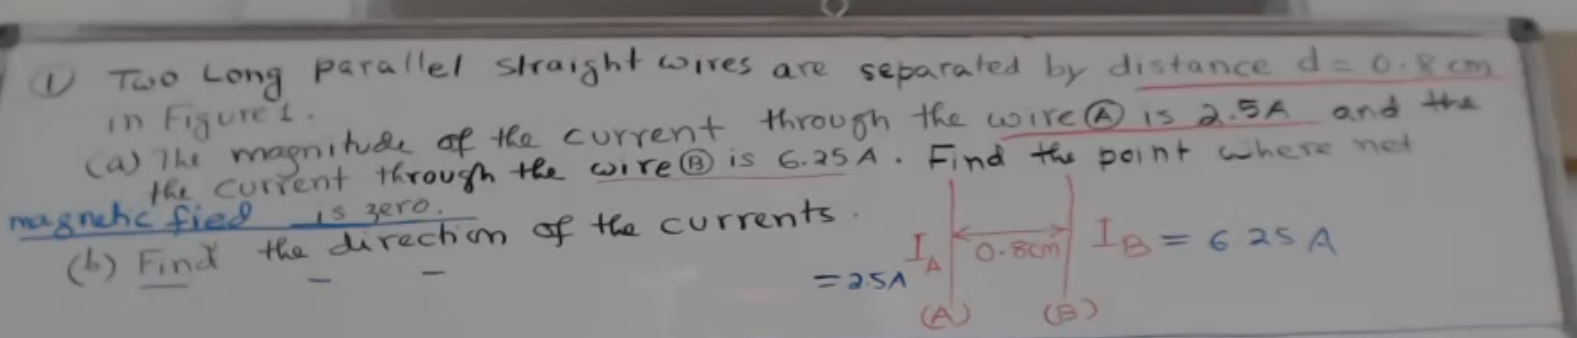 ① Two Long parallel straight wires are separated by distance d = 0.8 cm
in Figure 1.
(a) The magnitude of the current through the wire Ⓐ is 2.5A and the
the current through the wire Ⓑ is 6.25A. Find the point where net
magnetic fied is zero.
(b) Find the direction of the currents.
I_A 0.8cm I_B = 6 25 A
= 2.5A
(A) (B)